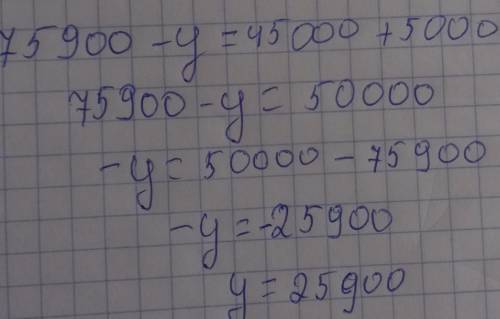 75900 - y = 45000 + 5000
75900 - y = 50000
- y = 50000 - 75900
- y = -25900
y = 25900